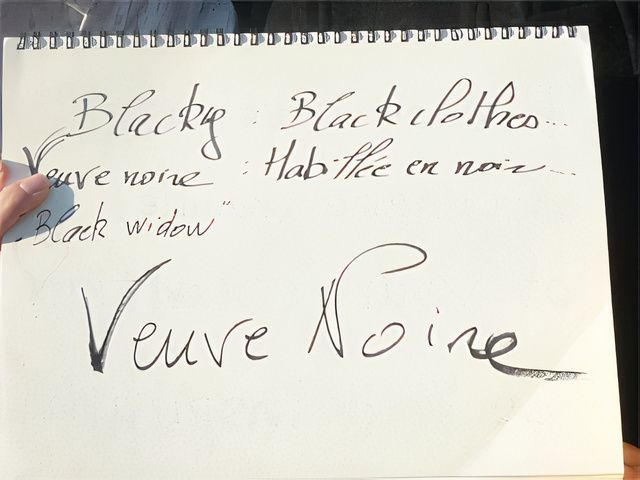 Blacky : Black clothes...
Veuve noire : Habillée en noir...
"Black widow"
Veuve Noire